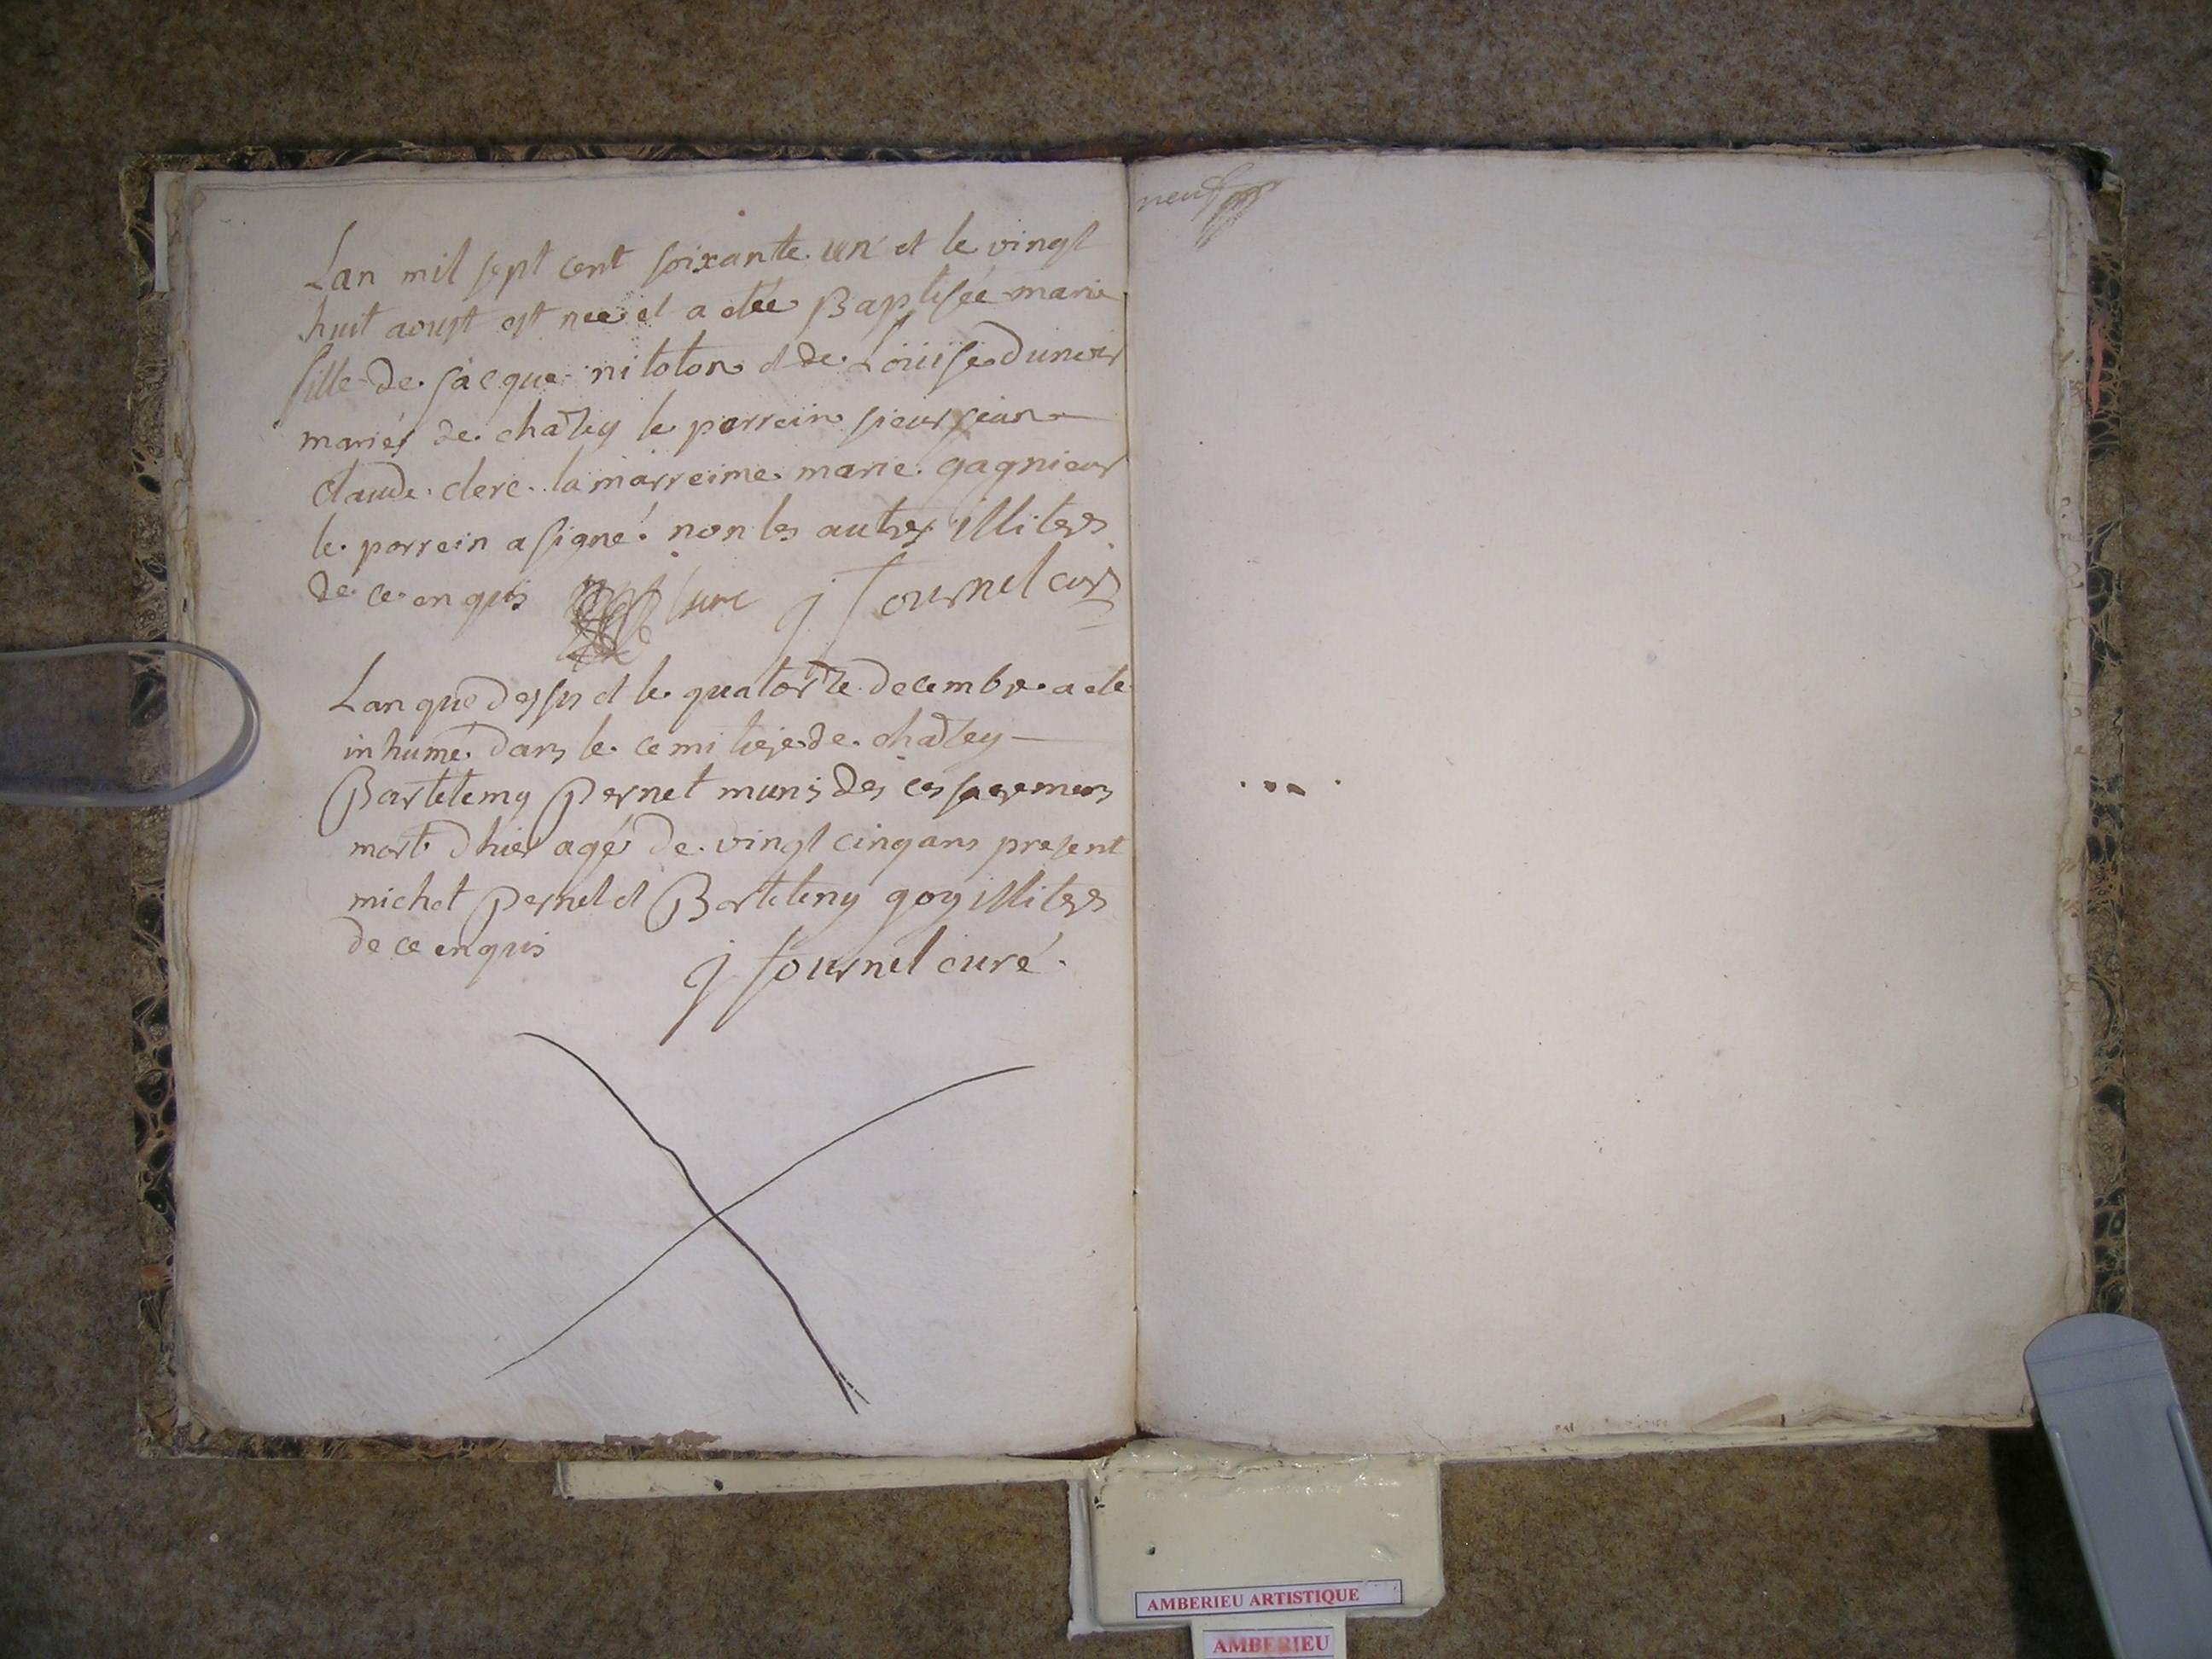 Lan mil sept cent soixante un et le vingt
huit aoust est neé et a etée Baptisée marie
fille de jacque nitoton et de Louise duner
mariés de chatey le parrein sieur jean
claude clerc la marreime marie gagnieur
le parrein a signé non les autres illiteres
de ce enquis clerc j fournel curé
Lan que dessus et le quatorze decembre a ete
inhumé dans le cemitiere de chatey
Bartelemy Pernet munis des ces sacremens
mort dhier agé de vingt cinq ans present
michel Pernet et Bartelemy goy illiteres
de ce enquis
j fournel curé
neuf
AMBERIEU ARTISTIQUE
AMBERIEU